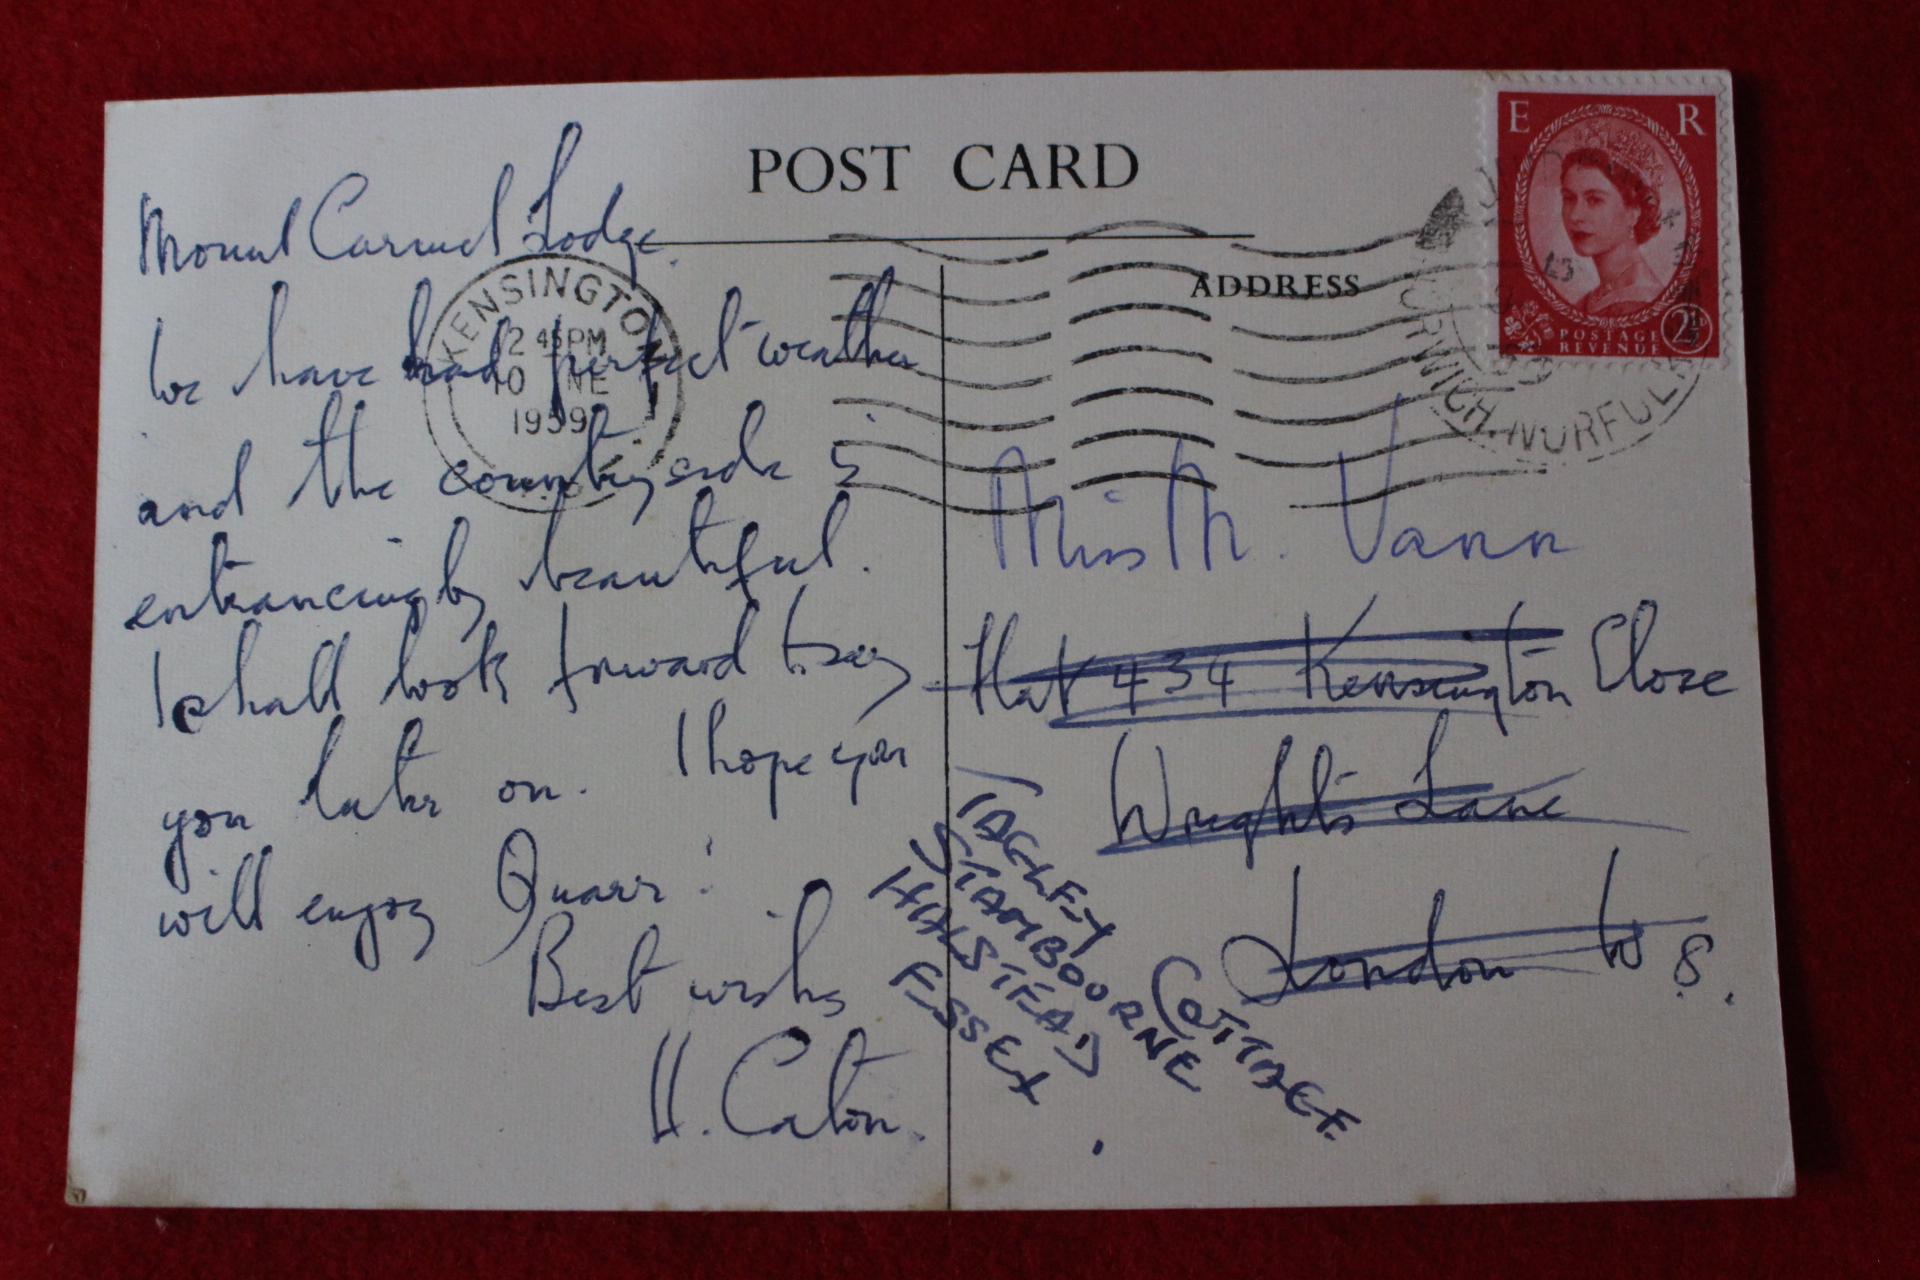 POST CARD
ADDRESS
E R
POSTAGE
REVENUE
2½D
KENSINGTON
2 45PM
10 NE
1959
NORWICH. NORFOLK
Mount Carmel Lodge.
We have had perfect weather
and the countryside is
entrancingly beautiful.
I shall look forward to seeing
you later on. I hope you
will enjoy Quarr!
Best wishes
H. Caton.
Miss M. Vann
Flat 434 Kensington Close
Wright's Lane
London W 8.
COTTAGE.
STAMBOURNE
HALSTEAD
ESSEX